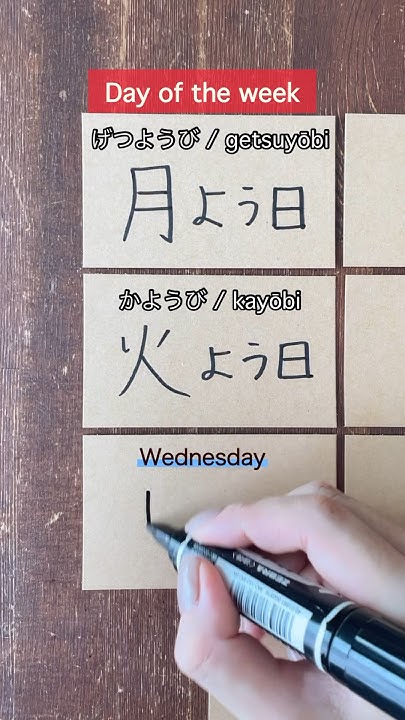 Day of the week
げつようび / getsuyōbi
月よう日
かようび / kayōbi
火よう日
Wednesday
ZEBRA